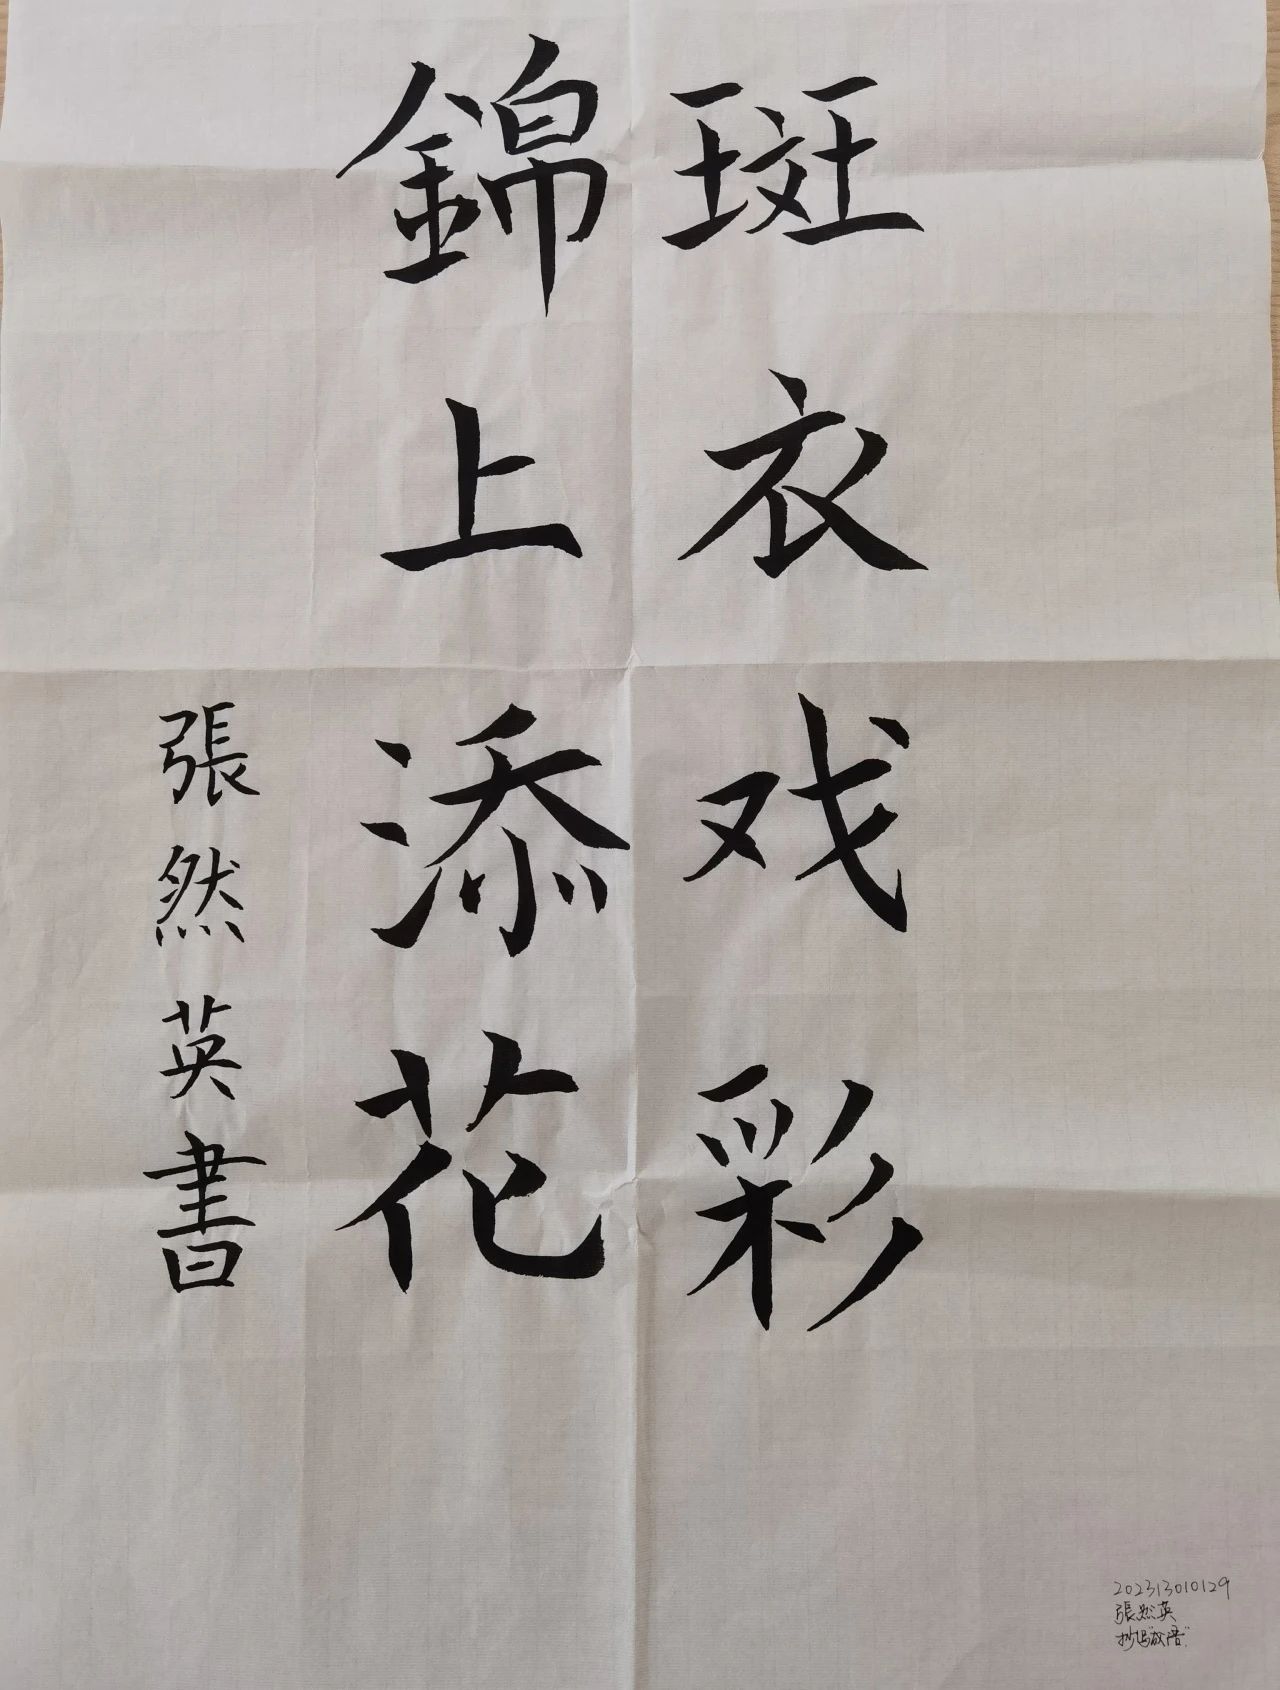 斑衣戏彩
錦上添花
張然英書
202313010129
張然英
抄写